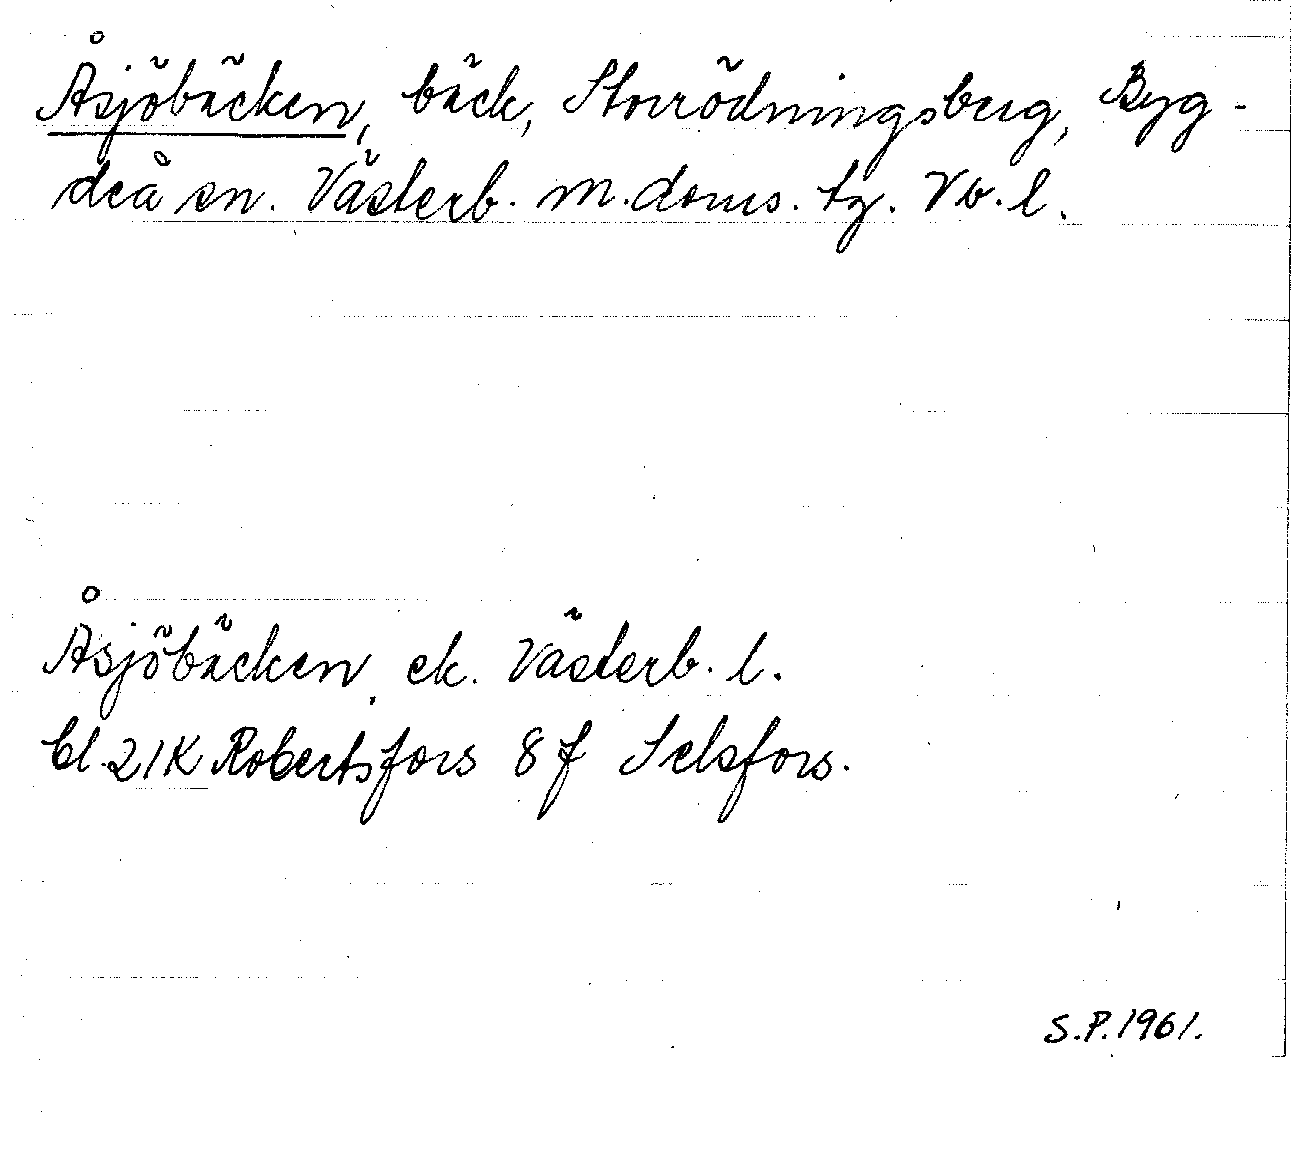 Åsjöbäcken, bäck, Storrödningsberg, Byg-
deå sn. Västerb. m. doms. tg. Vb. l.
Åsjöbäcken, ek. Västerb. l.
bl. 21K Robertsfors 8f Selsfors.
S.P. 1961.